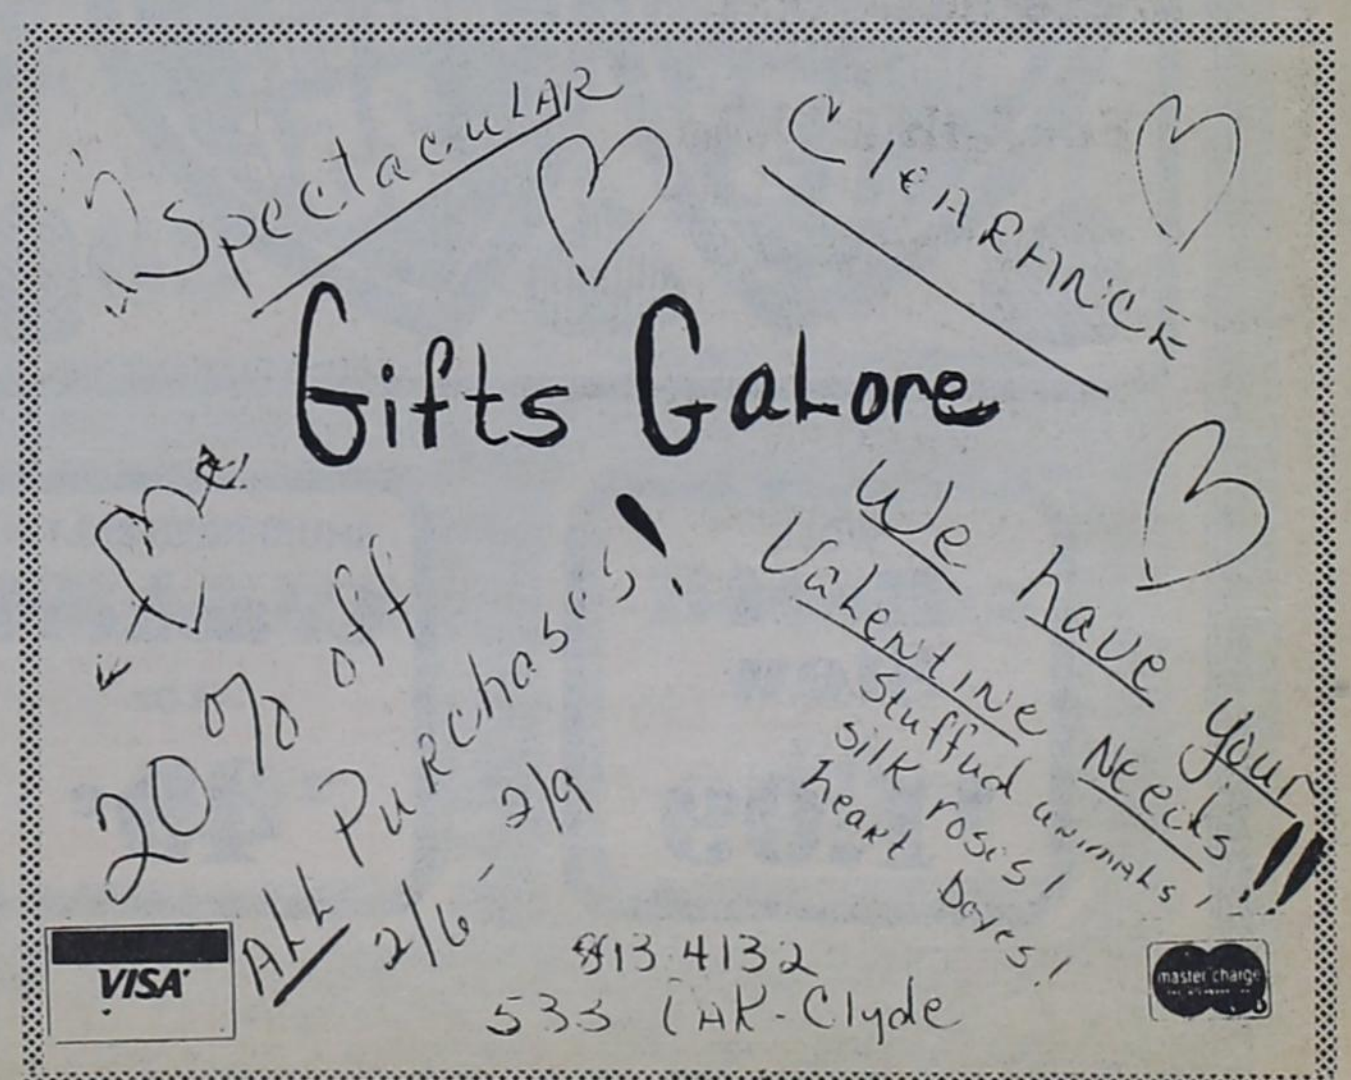 Spectacular
Clearance
Gifts Galore
20% off
All Purchases!
2/6 - 2/9
We have your
Valentine Needs!!
Stuffud animals!
silk roses!
heart boxes!
VISA
813-4132
533 OAK - Clyde
master charge